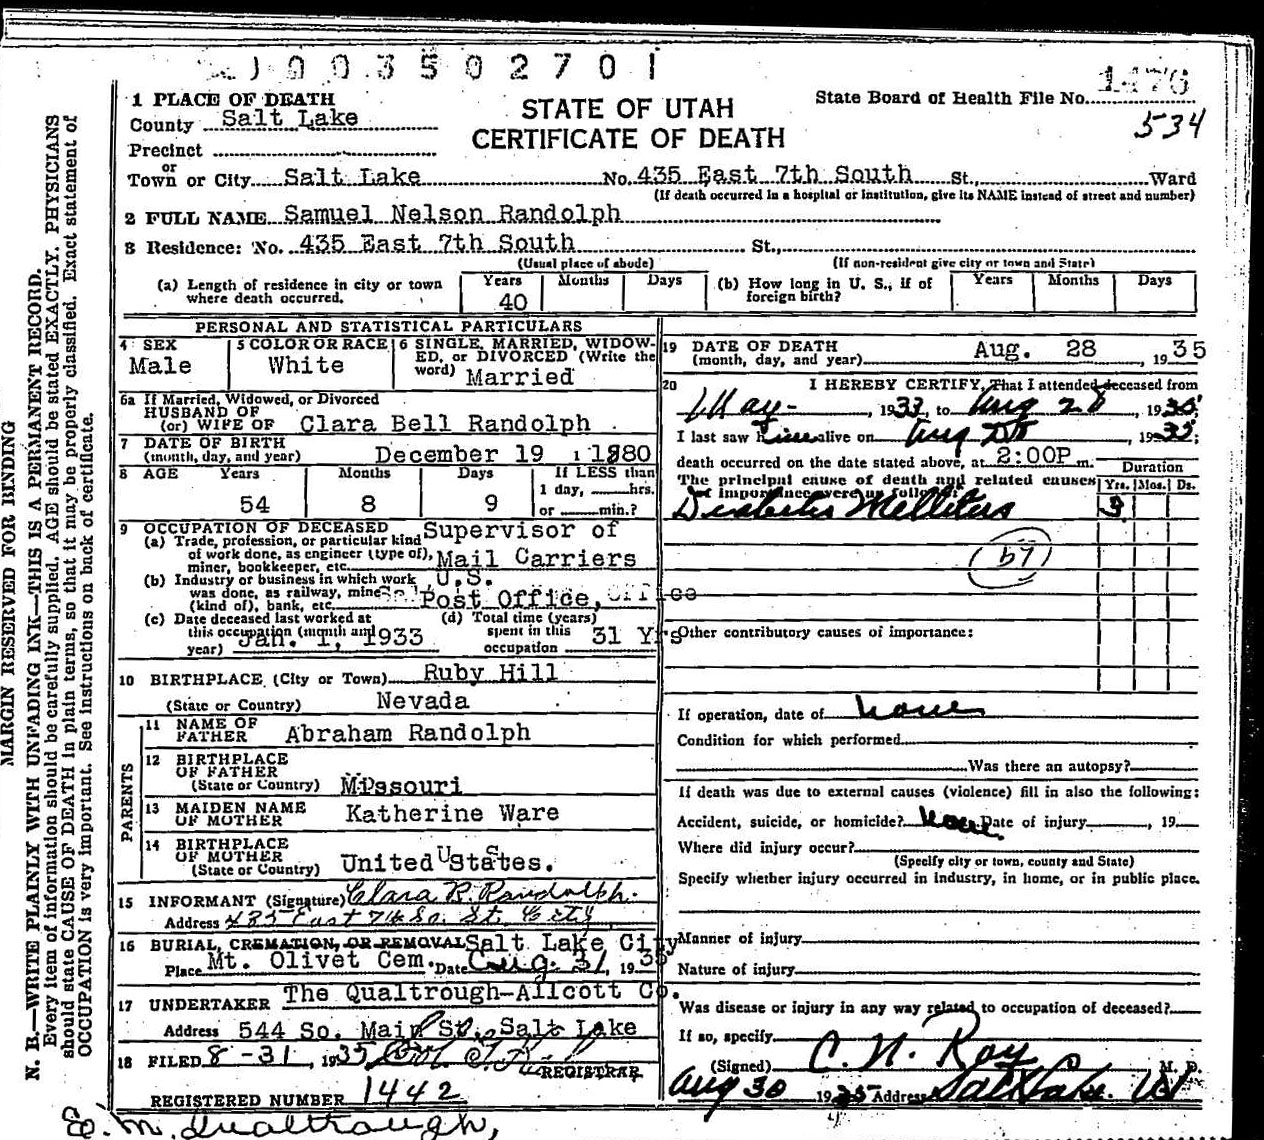 0 0 3 5 0 2 7 0 1
1 PLACE OF DEATH
STATE OF UTAH
CERTIFICATE OF DEATH
State Board of Health File No. 1476
534
County Salt Lake
Precinct
or
Town or City Salt Lake No. 435 East 7th South St., Ward
(If death occurred in a hospital or institution, give its NAME instead of street and number)
2 FULL NAME Samuel Nelson Randolph
3 Residence: No. 435 East 7th South St.,
(Usual place of abode) (If non-resident give city or town and State)
(a) Length of residence in city or town where death occurred. Years 40 Months Days (b) How long in U. S., if of foreign birth? Years Months Days
PERSONAL AND STATISTICAL PARTICULARS
4 SEX Male
5 COLOR OR RACE White
6 SINGLE, MARRIED, WIDOWED, or DIVORCED (Write the word) Married
6a If Married, Widowed, or Divorced
HUSBAND OF
(or) WIFE OF Clara Bell Randolph
7 DATE OF BIRTH
(month, day, and year) December 19 1880
8 AGE Years 54 Months 8 Days 9 If LESS than 1 day, hrs. or min.?
9 OCCUPATION OF DECEASED
(a) Trade, profession, or particular kind of work done, as engineer (type of), miner, bookkeeper, etc. Supervisor of Mail Carriers
(b) Industry or business in which work was done, as railway, mine (kind of), bank, etc. U.S. Post Office,
(c) Date deceased last worked at this occupation (month and year) Jan. 1, 1933
(d) Total time (years) spent in this occupation 31 Yrs
10 BIRTHPLACE (City or Town) Ruby Hill
(State or Country) Nevada
PARENTS
11 NAME OF FATHER Abraham Randolph
12 BIRTHPLACE OF FATHER
(State or Country) Missouri
13 MAIDEN NAME OF MOTHER Katherine Ware
14 BIRTHPLACE OF MOTHER
(State or Country) United States.
15 INFORMANT (Signature) Clara B. Randolph.
Address 435 East 7th So. St. City
16 BURIAL, CREMATION, OR REMOVAL Salt Lake City
Place Mt. Olivet Cem. Date Aug. 31, 1935
17 UNDERTAKER The Qualtrough-Allcott Co.
Address 544 So. Main St., Salt Lake
18 FILED 8-31, 1935
REGISTRAR
REGISTERED NUMBER 1442
E. M. Qualtrough,
19 DATE OF DEATH
(month, day, and year) Aug. 28 1935
20 I HEREBY CERTIFY, That I attended deceased from
May - , 1933, to Aug 28, 1935;
I last saw him alive on Aug 28, 1935;
death occurred on the date stated above, at 2:00P m.
The principal cause of death and related causes of importance were as follows:
Duration
Yrs. Mos. Ds.
Diabetes Mellitus 3
Other contributory causes of importance:
If operation, date of none
Condition for which performed
Was there an autopsy?
If death was due to external causes (violence) fill in also the following:
Accident, suicide, or homicide? none Date of injury , 19
Where did injury occur?
(Specify city or town, county and State)
Specify whether injury occurred in industry, in home, or in public place.
Manner of injury
Nature of injury
Was disease or injury in any way related to occupation of deceased?
If so, specify
(Signed) C. N. Ray M. D.
Aug 30 1935 Address Salt Lake. Ut
MARGIN RESERVED FOR BINDING
N. B.—WRITE PLAINLY WITH UNFADING INK—THIS IS A PERMANENT RECORD.
Every item of information should be carefully supplied. AGE should be stated EXACTLY. PHYSICIANS
should state CAUSE OF DEATH in plain terms, so that it may be properly classified. Exact statement of
OCCUPATION is very important. See instructions on back of certificate.